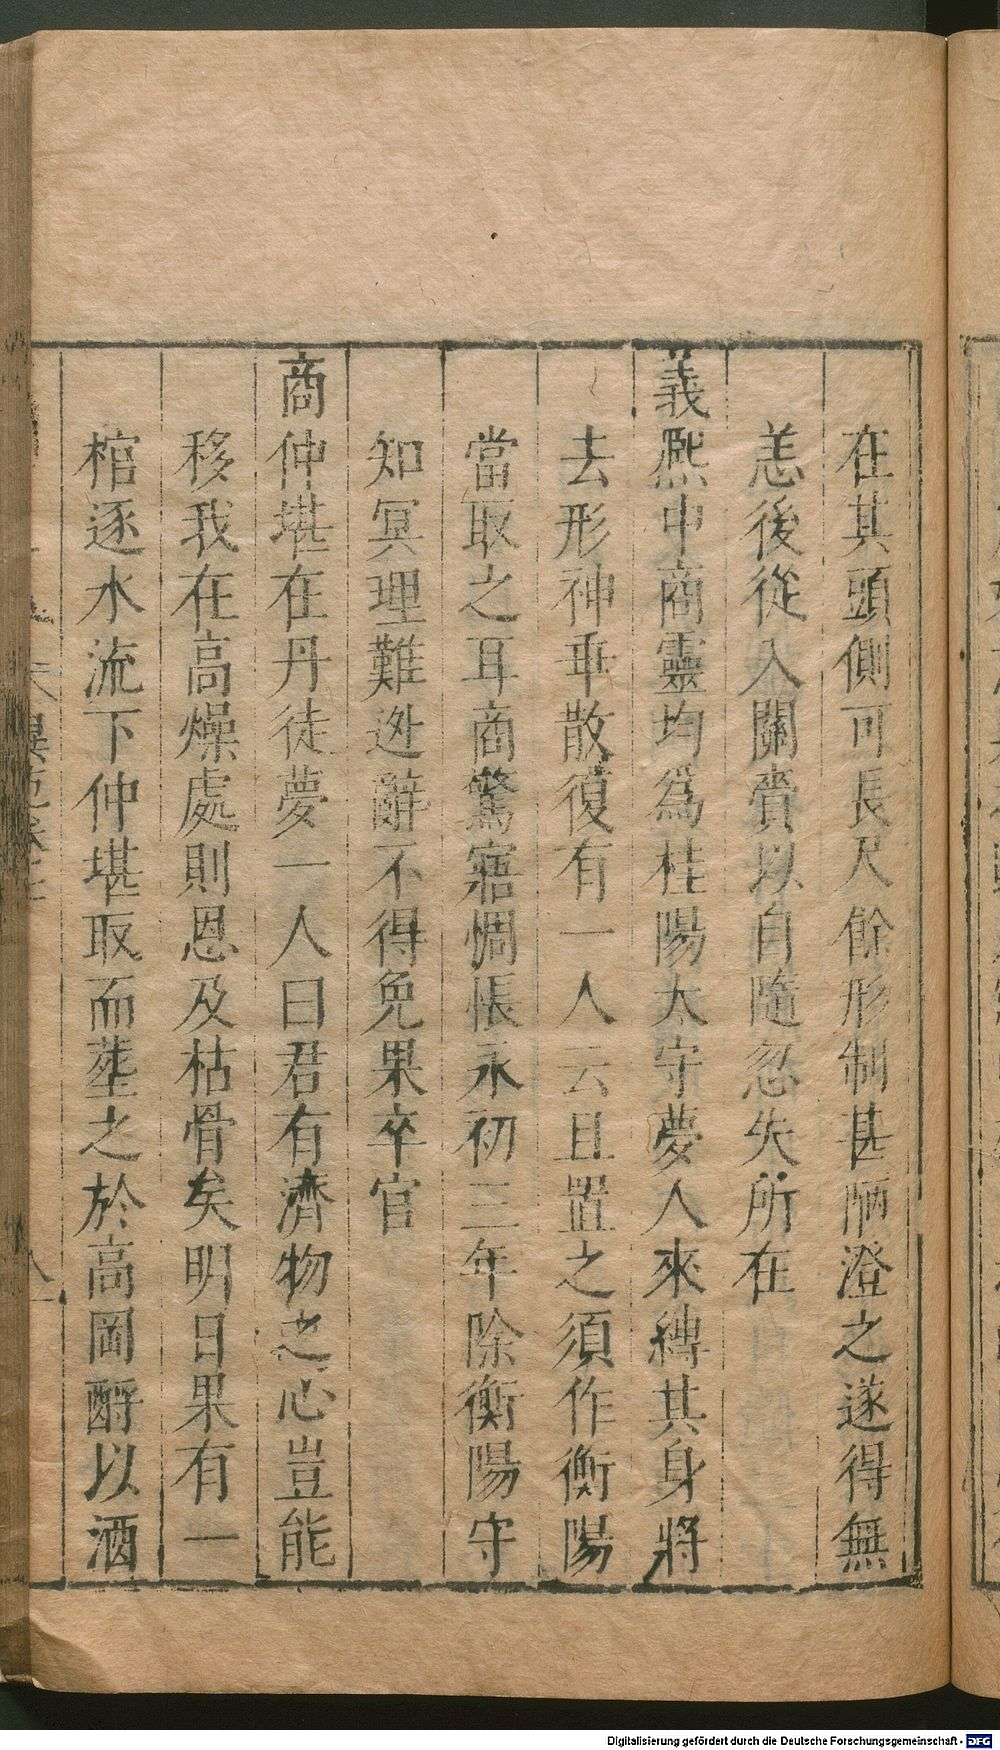 在其頭側可長尺餘形制甚陋澄之遂得無
恙後從入關賷以自隨忽失所在
義熈中商靈均爲桂陽太守夢人來縛其身將
去形神乖散復有一人云且置之須作衡陽
當取之耳商驚寤惆悵永初三年除衡陽守
知冥理難迯辭不得免果卒官
商仲堪在丹徒夢一人曰君有濟物之心豈能
移我在高燥處則恩及枯骨矣明日果有一
棺逐水流下仲堪取而塟之於高岡酹以酒
Digitalisierung gefördert durch die Deutsche Forschungsgemeinschaft - DFG